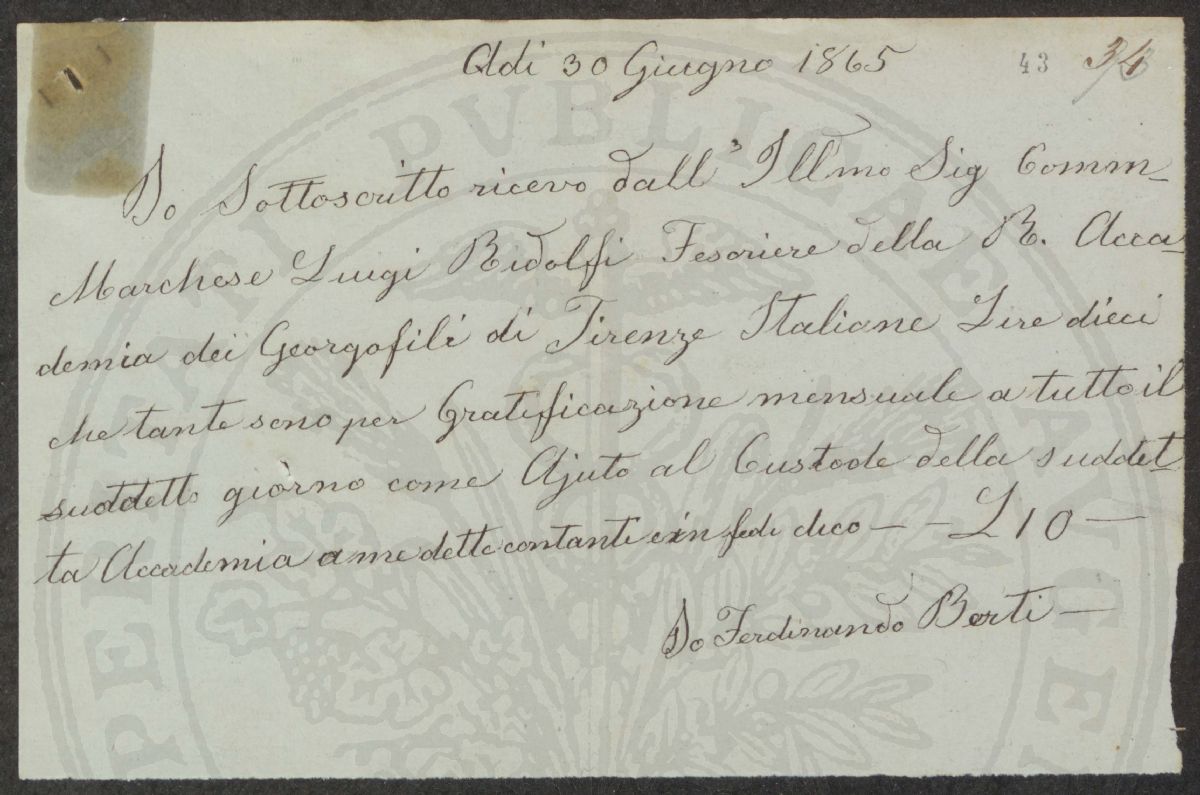 Adi 30 Giugno 1865
43 34
Io Sottoscritto ricevo dall' Ill'mo Sig Comm-
Marchese Luigi Ridolfi Tesoriere della R. Acca
demia dei Georgofili di Firenze Italiane Lire dieci
che tante sono per Gratificazione mensuale a tutto il
suddetto giorno come Ajuto al Custode della suddet
ta Accademia a me dette contanti e in fede dico — — L 10 —
Io Ferdinando Berti —